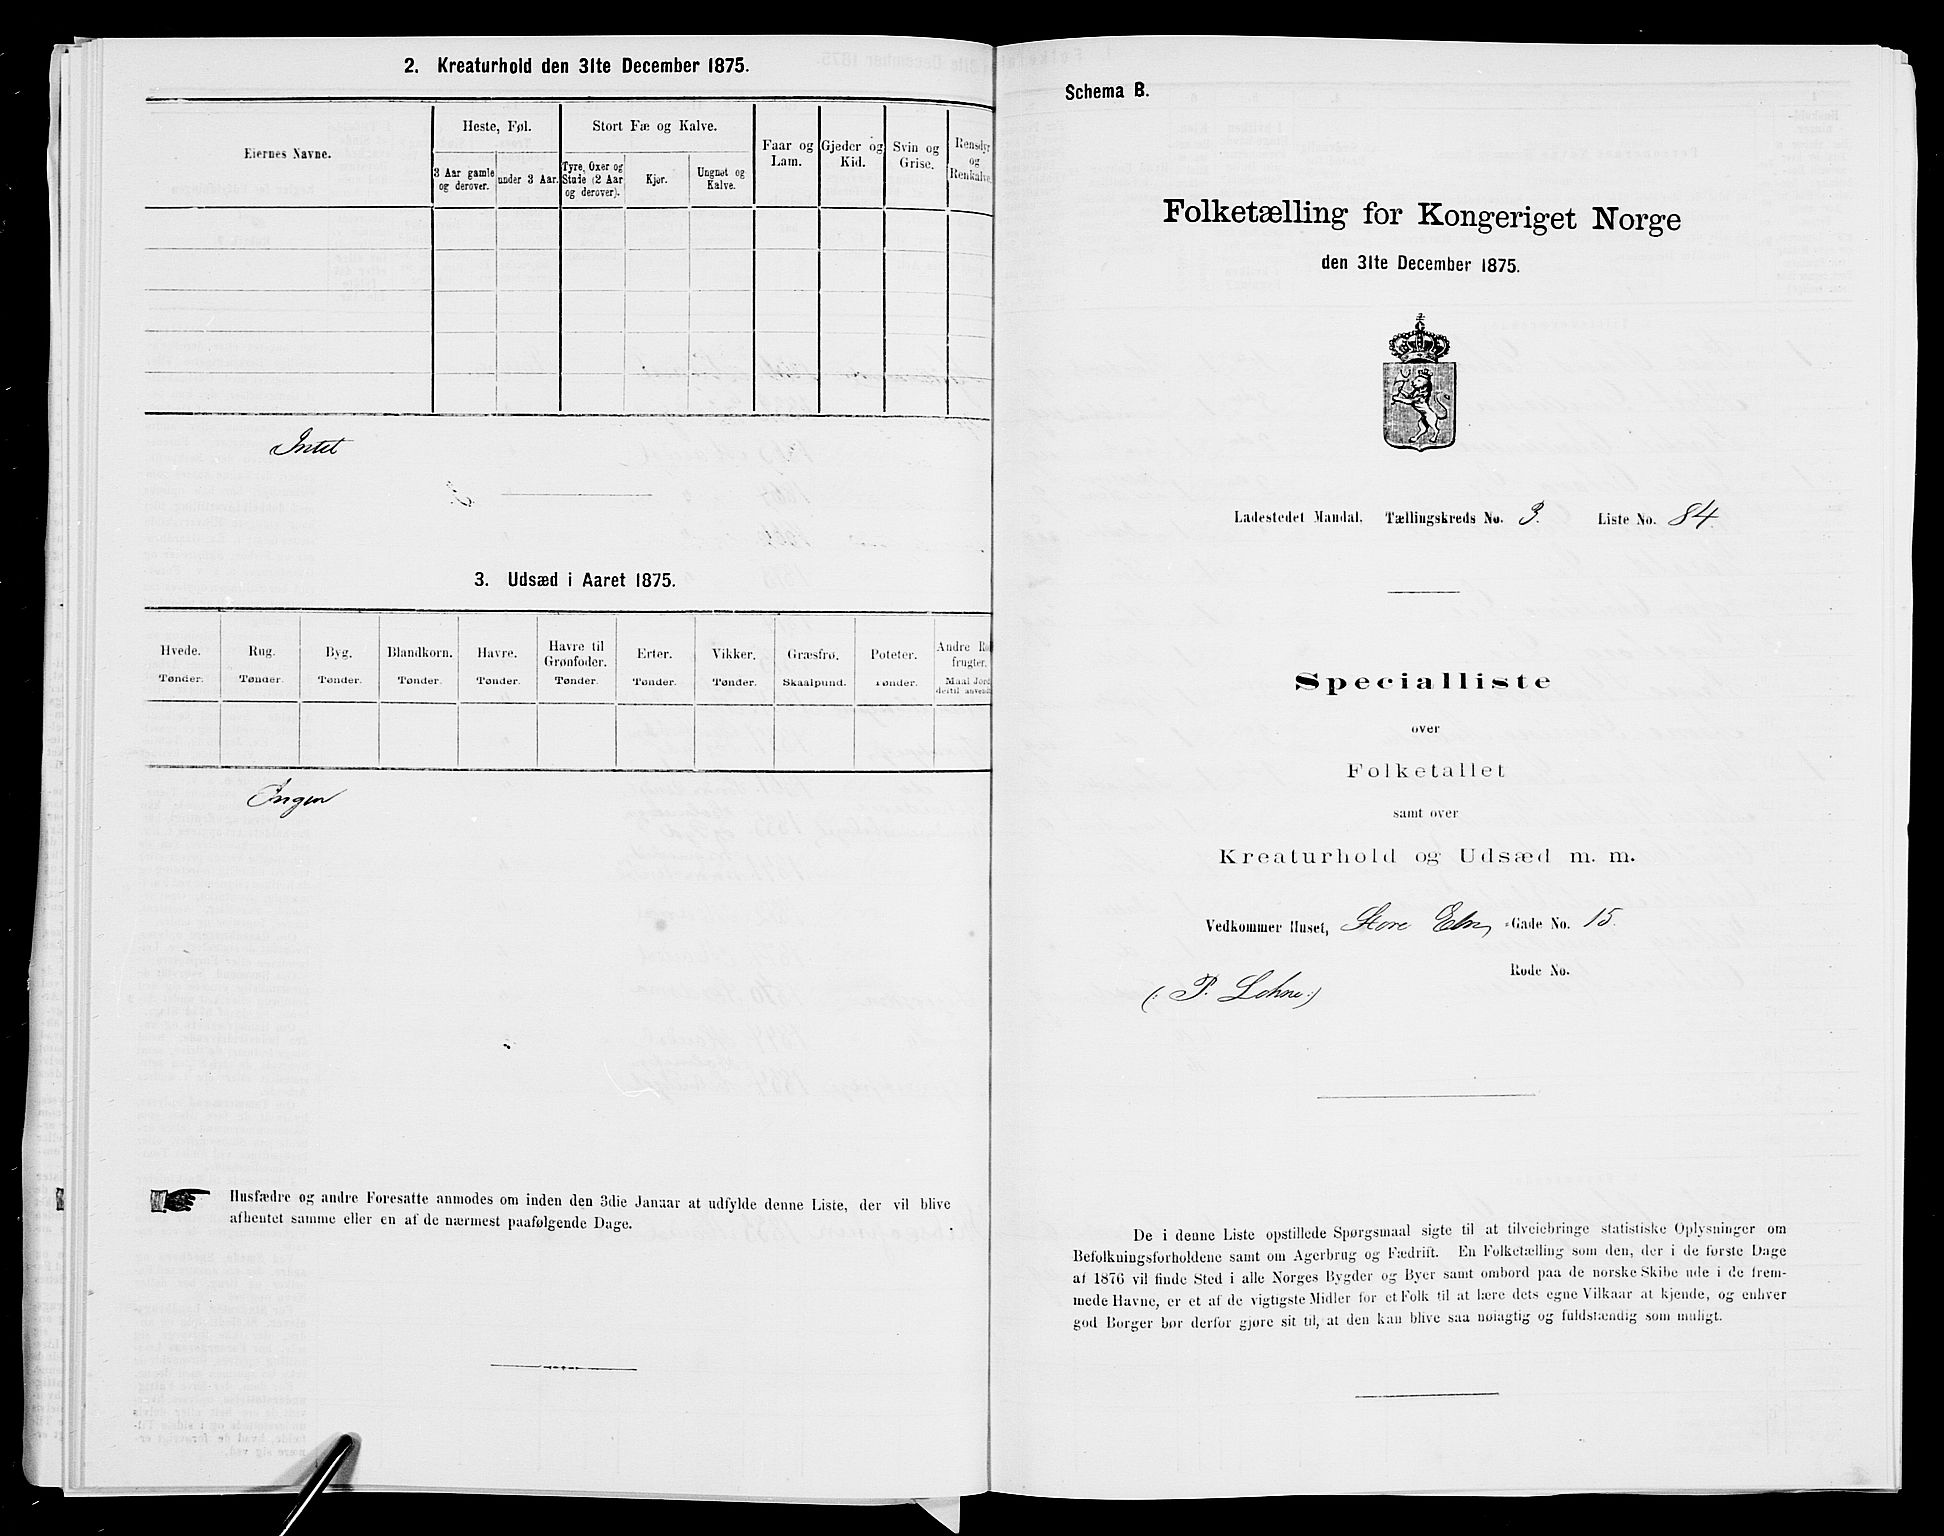 2. Kreaturhold den 31te December 1875.
Eiernes Navne.
Heste, Føl.
Stort Fæ og Kalve.
Faar og
Lam.
Gjeder og
Kid.
Svin og
Grise.
Rensdyr
og
Renkalve.
3 Aar gamle
og derover.
under 3 Aar.
Tyre, Oxer og
Stude (2 Aar
og derover).
Kjør.
Ungnøt og
Kalve.
Intet
3. Udsæd i Aaret 1875.
Hvede.
Tønder.
Rug.
Tønder.
Byg.
Tønder.
Blandkorn.
Tønder.
Havre.
Tønder.
Havre til
Grønfoder.
Tønder.
Erter.
Tønder.
Vikker.
Tønder.
Græsfrø.
Skaalpund.
Poteter.
Tønder.
Andre Ro
frugter.
Maal Jord
dertil anvendt
Ingen
Husfædre og andre Foresatte anmodes om inden den 3die Januar at udfylde denne Liste, der vil blive
afhentet samme eller en af de nærmest paafølgende Dage.
Schema B.
Folketælling for Kongeriget Norge
den 31te December 1875.
Ladestedet Mandal. Tællingskreds No. 3. Liste No. 84.
Specialliste
over
Folketallet
samt over
Kreaturhold og Udsæd m. m.
Vedkommer Huset, Store Elve-Gade No. 15.
Rode No.
(: P. Lohne :)
De i denne Liste opstillede Spørgsmaal sigte til at tilveiebringe statistiske Oplysninger om
Befolkningsforholdene samt om Agerbrug og Fædrift. En Folketælling som den, der i de første Dage
af 1876 vil finde Sted i alle Norges Bygder og Byer samt ombord paa de norske Skibe ude i de frem-
mede Havne, er et af de vigtigste Midler for et Folk til at lære dets egne Vilkaar at kjende, og enhver
god Borger bør derfor gjøre sit til, at den kan blive saa nøiagtig og fuldstændig som muligt.